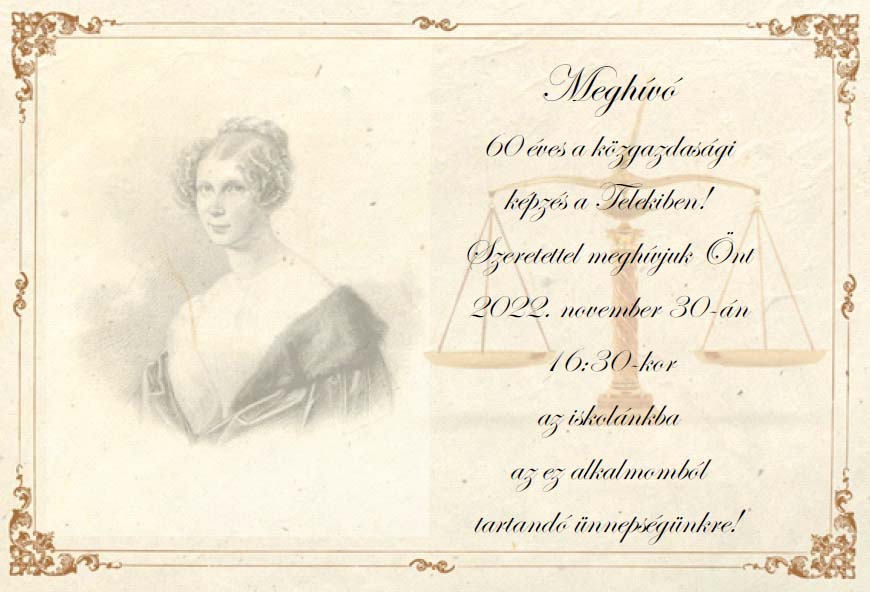 Meghívó
60 éves a közgazdasági
képzés a Telekiben!
Szeretettel meghívjuk Önt
2022. november 30-án
16:30-kor
az iskolánkba
az ez alkalmomból
tartandó ünnepségünkre!